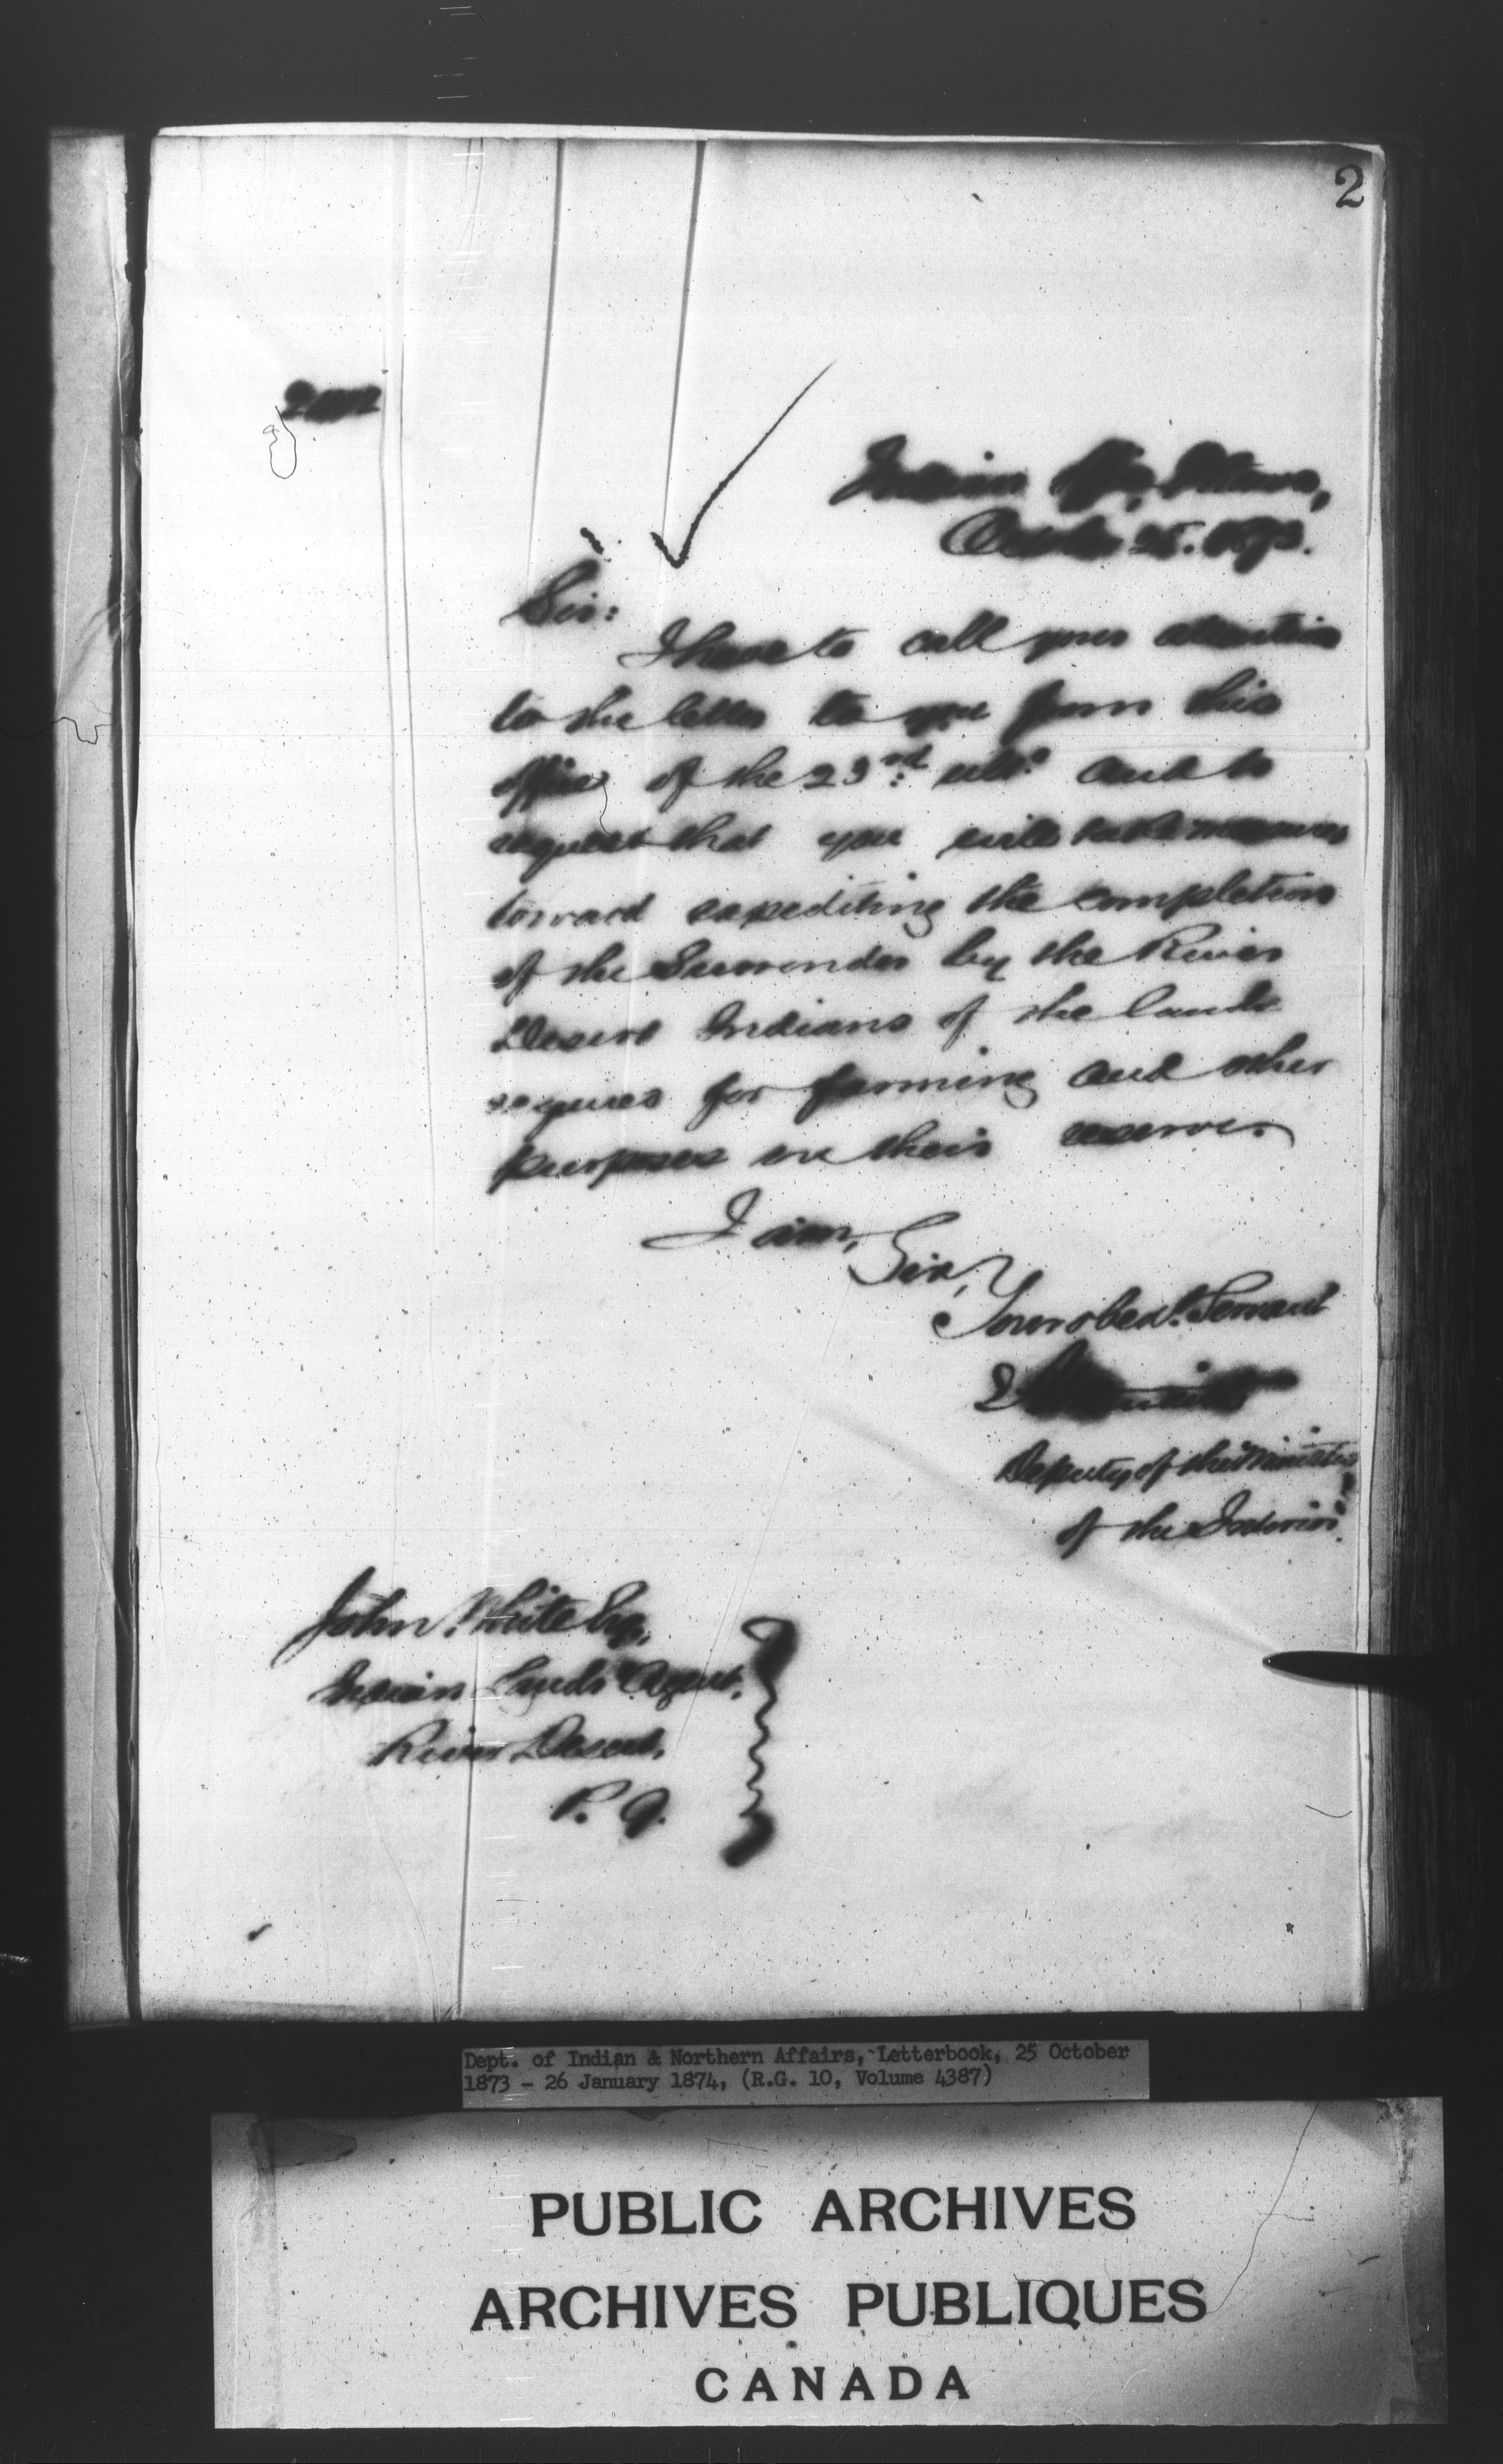 2
Indian Office, Ottawa,
October 25. 1873.
Sir:
I have to call your attention
to the letter to you from this
office of the 23rd ulto and to
request that you will take measures
toward expediting the completion
of the Surrender by the River
Desert Indians of the lands
required for farming and other
purposes on their reserve.
I am,
Sir,
Your obedt. Servant
Deputy of the Minister
of the Interior.
John White Esq,
Indian Lands Agent,
River Desert,
P. Q.
Dept. of Indian & Northern Affairs, Letterbook, 25 October
1873 - 26 January 1874, (R.G. 10, Volume 4387)
PUBLIC ARCHIVES
ARCHIVES PUBLIQUES
CANADA